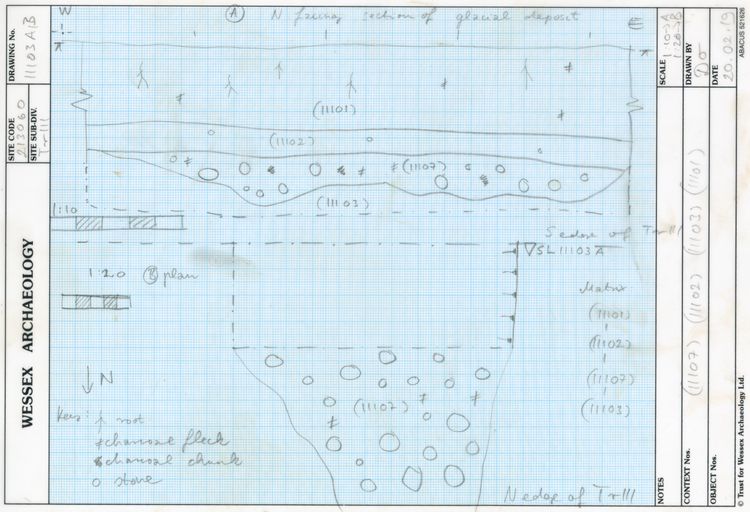 DRAWING No. 11103 A, B
SITE CODE 213060
SITE SUB-DIV. Tr 111
WESSEX ARCHAEOLOGY
W
(A) N facing section of glacial deposit
E
(11101)
(11102)
(11107)
(11103)
1:10
S edge of Tr 111
SL 11103 A
1:20 (B) plan
Matrix
(11101)
(11102)
(11107)
(11103)
N
Key: root
charcoal fleck
charcoal chunk
stone
(11107)
N edge of Tr 111
SCALE 1:10 → A
1:20 → B
DRAWN BY
DATE 20.02.19
ABACUS 621626
NOTES
CONTEXT Nos. (11107) (11102) (11103) (11101)
OBJECT Nos.
© Trust for Wessex Archaeology Ltd.